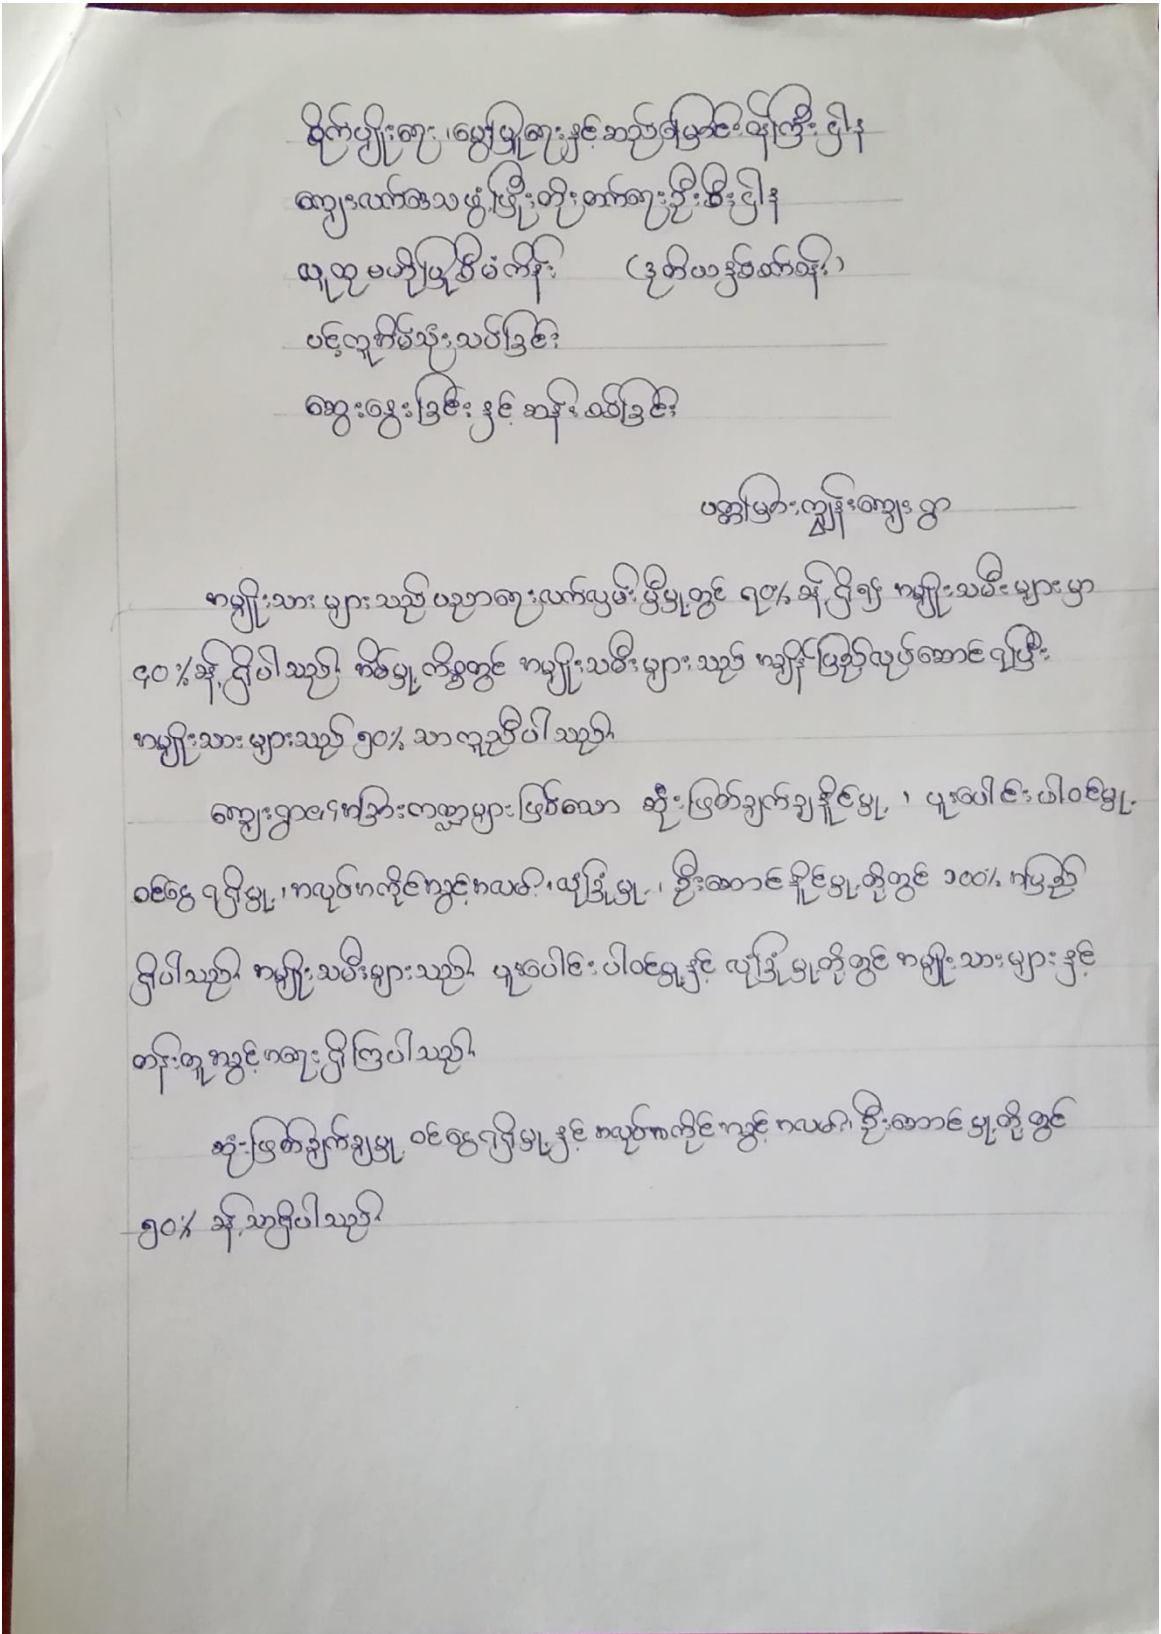 စိုက်ပျိုးရေး ၊ မွေးမြူရေးနှင့်ဆည်မြောင်းဝန်ကြီးဌာန
ကျေးလက်ဒေသဖွံ့ဖြိုးတိုးတက်ရေးဦးစီးဌာန
လူထုဗဟိုပြုစီမံကိန်း (ဒုတိယနှစ်ပတ်ဝန်း)
ပင့်ကူအိမ်သုံးသပ်ခြင်း
ဆွေးနွေးခြင်းနှင့်ဆန်းစစ်ခြင်း
ပတ္တမြားကျွန်းကျေးရွာ
အမျိုးသားများသည်ပညာရေးလက်လှမ်းမှီမှုတွင် ၇၀% ခန့်ရှိ၍ အမျိုးသမီးများမှာ
၄၀% ခန့်ရှိပါသည်။ အိမ်မှုကိစ္စတွင် အမျိုးသမီးများသည် အချိန်ပြည့်လုပ်ဆောင်ရပြီး
အမျိုးသားများသည် ၅၀% သာကူညီပါသည်။
ကျေးရွာ၏အခြားကဏ္ဍများဖြစ်သော ဆုံးဖြတ်ချက်ချနိုင်မှု ၊ ပူးပေါင်းပါဝင်မှု
ဝင်ငွေရရှိမှု ၊ အလုပ်အကိုင်အခွင့်အလမ်း ၊ လုံခြုံမှု ၊ ဦးဆောင်နိုင်မှုတို့တွင် ၁၀၀% အပြည့်
ရှိပါသည်။ အမျိုးသမီးများသည် ပူးပေါင်းပါဝင်မှုနှင့် လုံခြုံမှုတို့တွင် အမျိုးသားများနှင့်
တန်းတူအခွင့်အရေးရှိကြပါသည်။
ဆုံးဖြတ်ချက်ချမှု ဝင်ငွေရရှိမှုနှင့် အလုပ်အကိုင်အခွင့်အလမ်း ၊ ဦးဆောင်မှုတို့တွင်
၅၀% ခန့်သာရှိပါသည်။